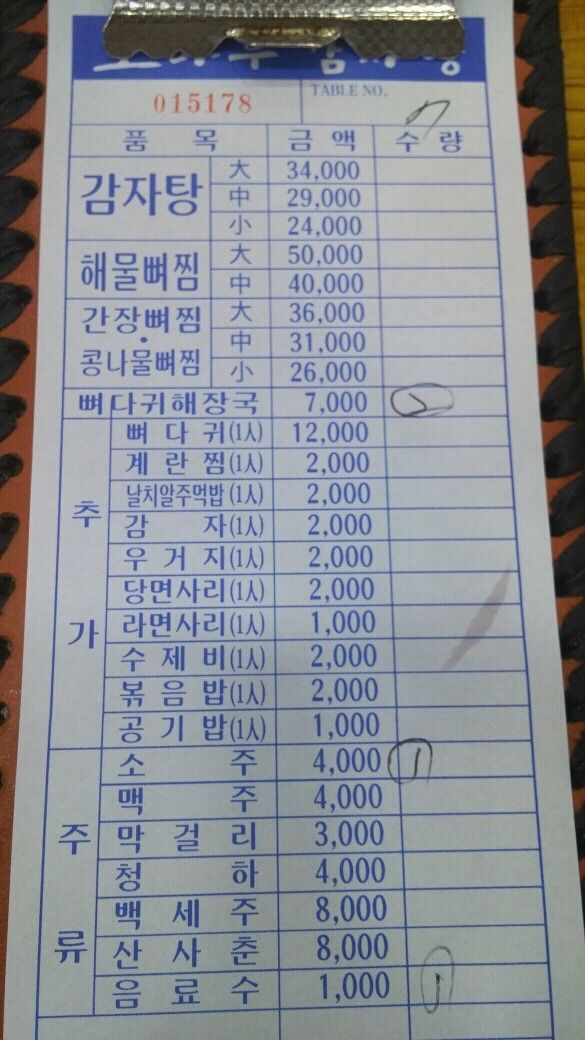 015178 TABLE NO. 7
품 목 금 액 수 량
감자탕 大 34,000
中 29,000
小 24,000
해물뼈찜 大 50,000
中 40,000
간장뼈찜 · 콩나물뼈찜 大 36,000
中 31,000
小 26,000
뼈다귀해장국 7,000 2
추가 뼈다귀(1人) 12,000
계란찜(1人) 2,000
날치알주먹밥(1人) 2,000
감자(1人) 2,000
우거지(1人) 2,000
당면사리(1人) 2,000
라면사리(1人) 1,000
수제비(1人) 2,000
볶음밥(1人) 2,000
공기밥(1人) 1,000
주류 소주 4,000 1
맥주 4,000
막걸리 3,000
청하 4,000
백세주 8,000
산사춘 8,000
음료수 1,000 1